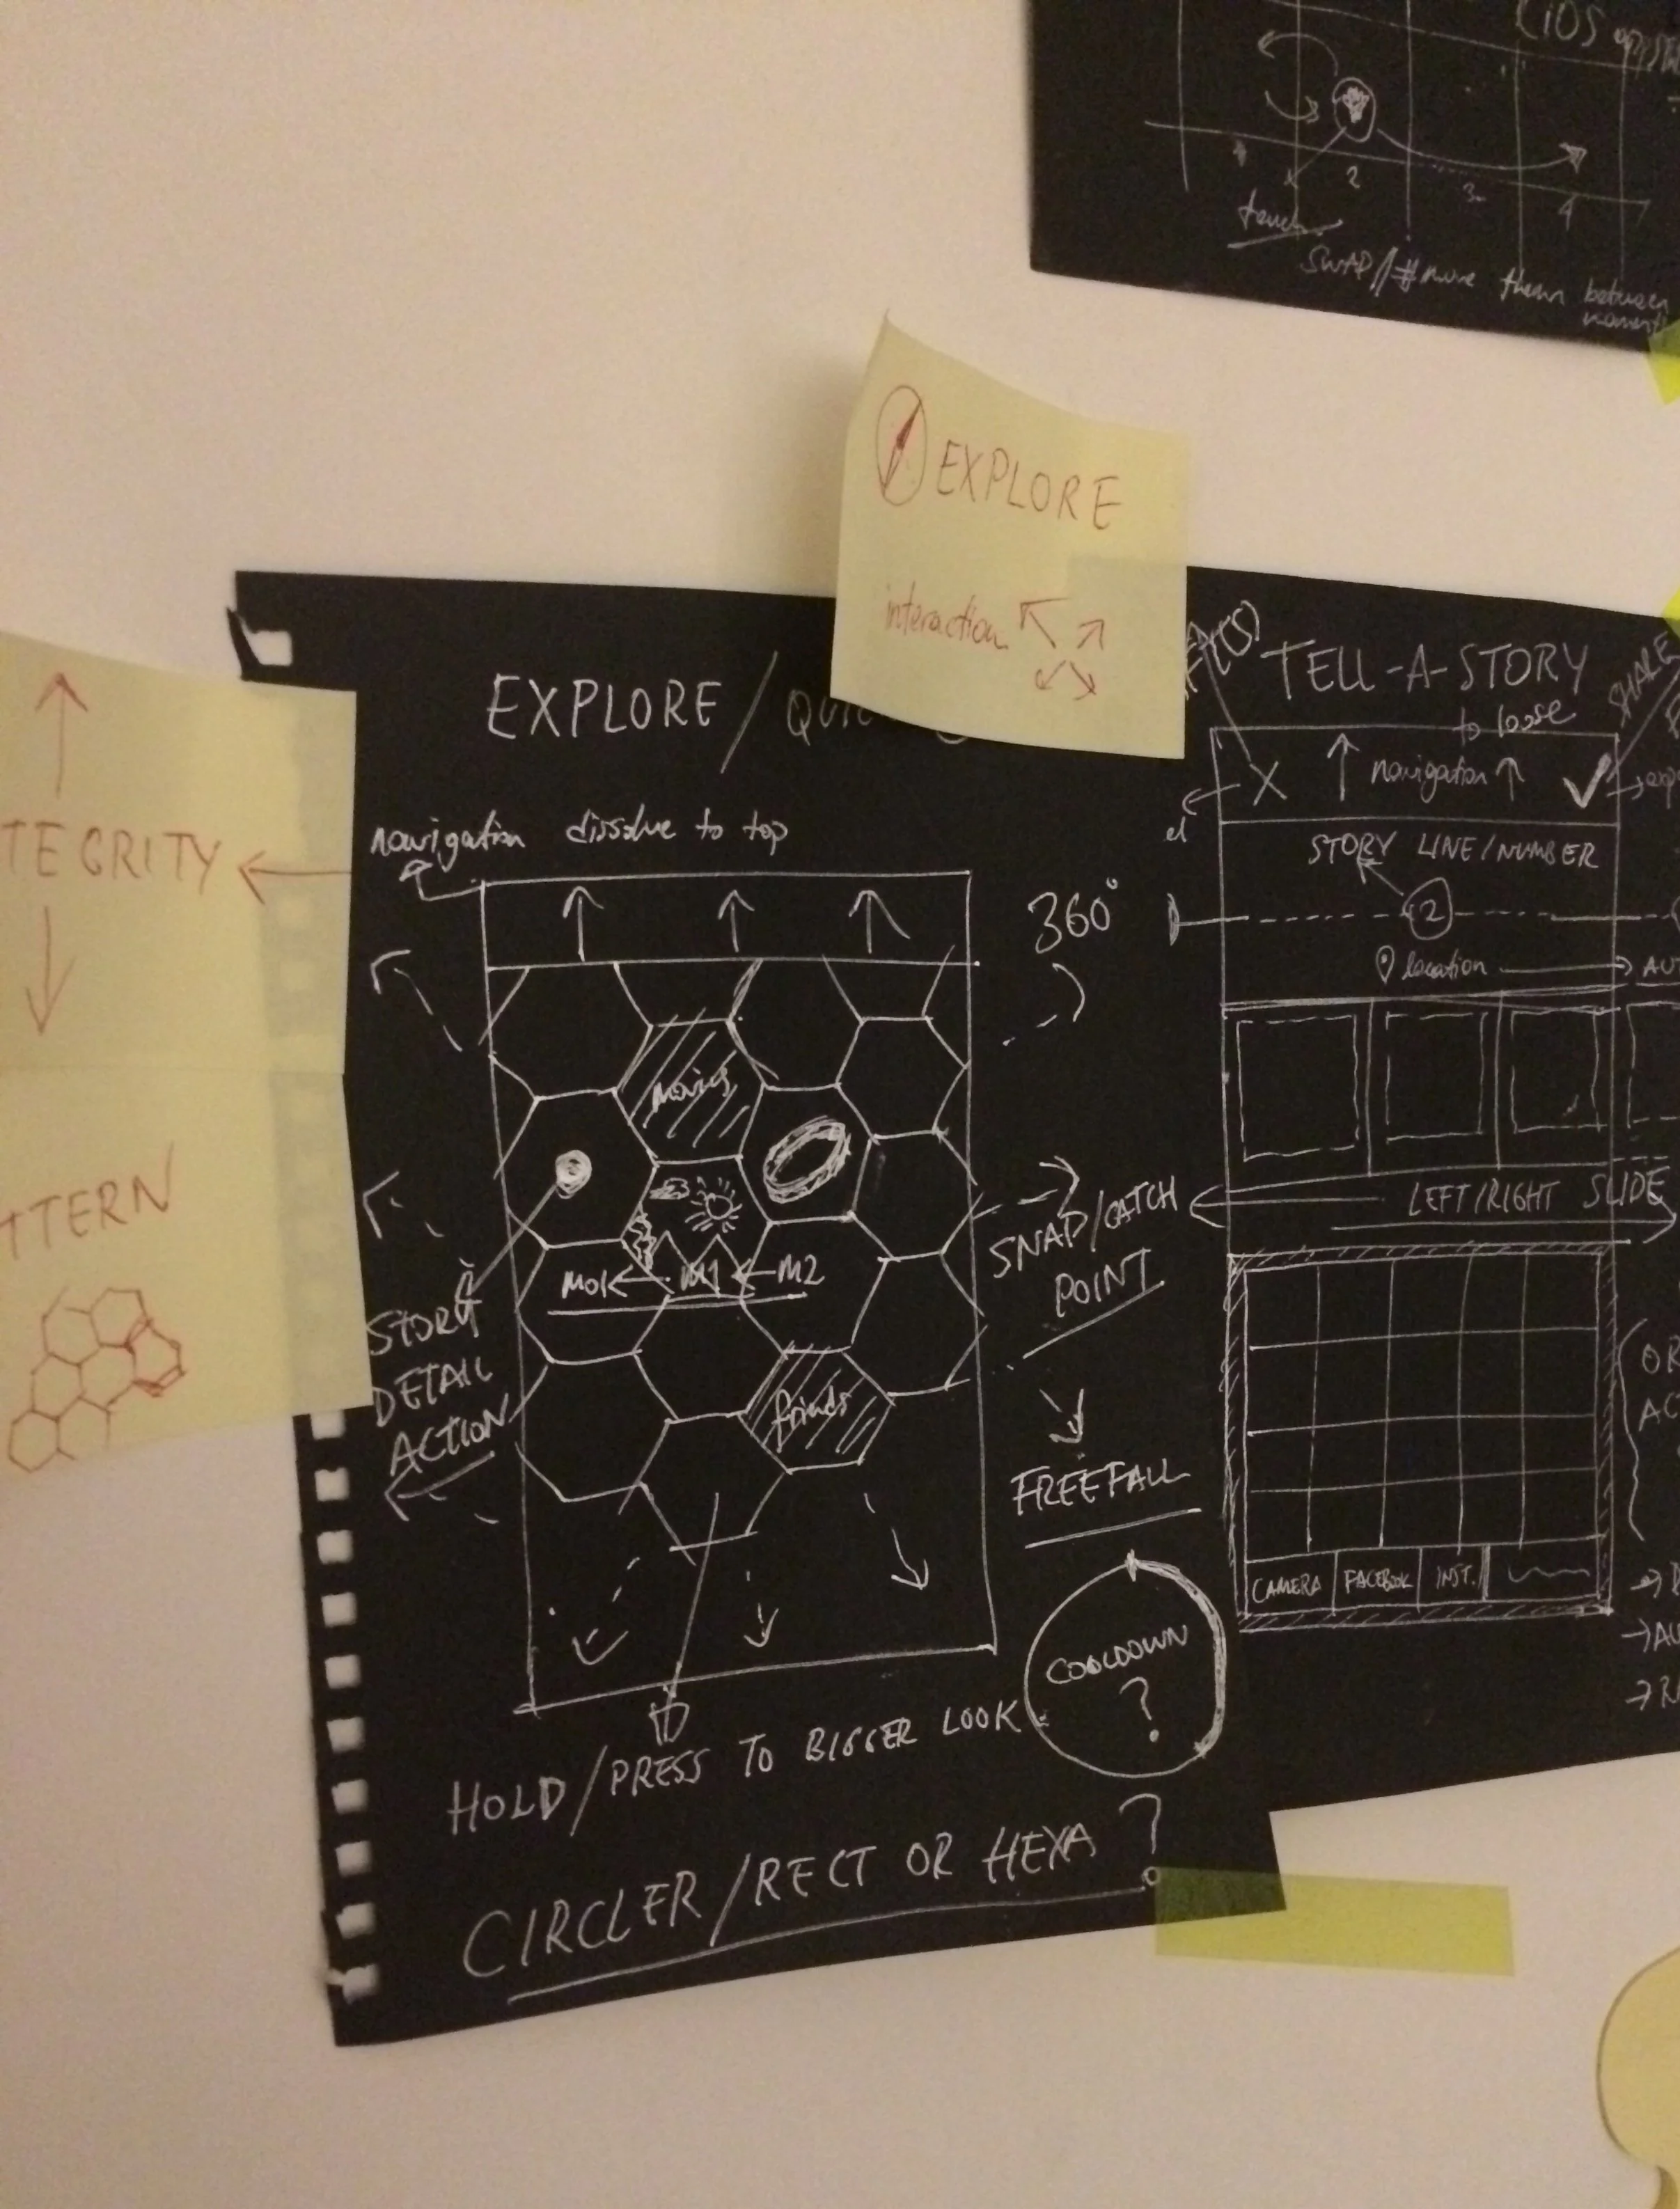 (iOS
2
3
4
touch
SWAP/# move them between
EXPLORE
interaction
EXPLORE/
navigation dissolve to top
360°
TEGRITY
TTERN
STORY
DETAIL
ACTION
MO1 ← M1 ← M2
friends
SNAP/CATCH
POINT
FREEFALL
COOLDOWN
?
HOLD/PRESS TO BIGGER LOOK
CIRCLER/RECT OR HEXA?
TELL-A-STORY
to loose
SHARE
X ↑ navigation ↑ ✓
STORY LINE/NUMBER
2
location
LEFT/RIGHT SLIDE
CAMERA FACEBOOK INST.